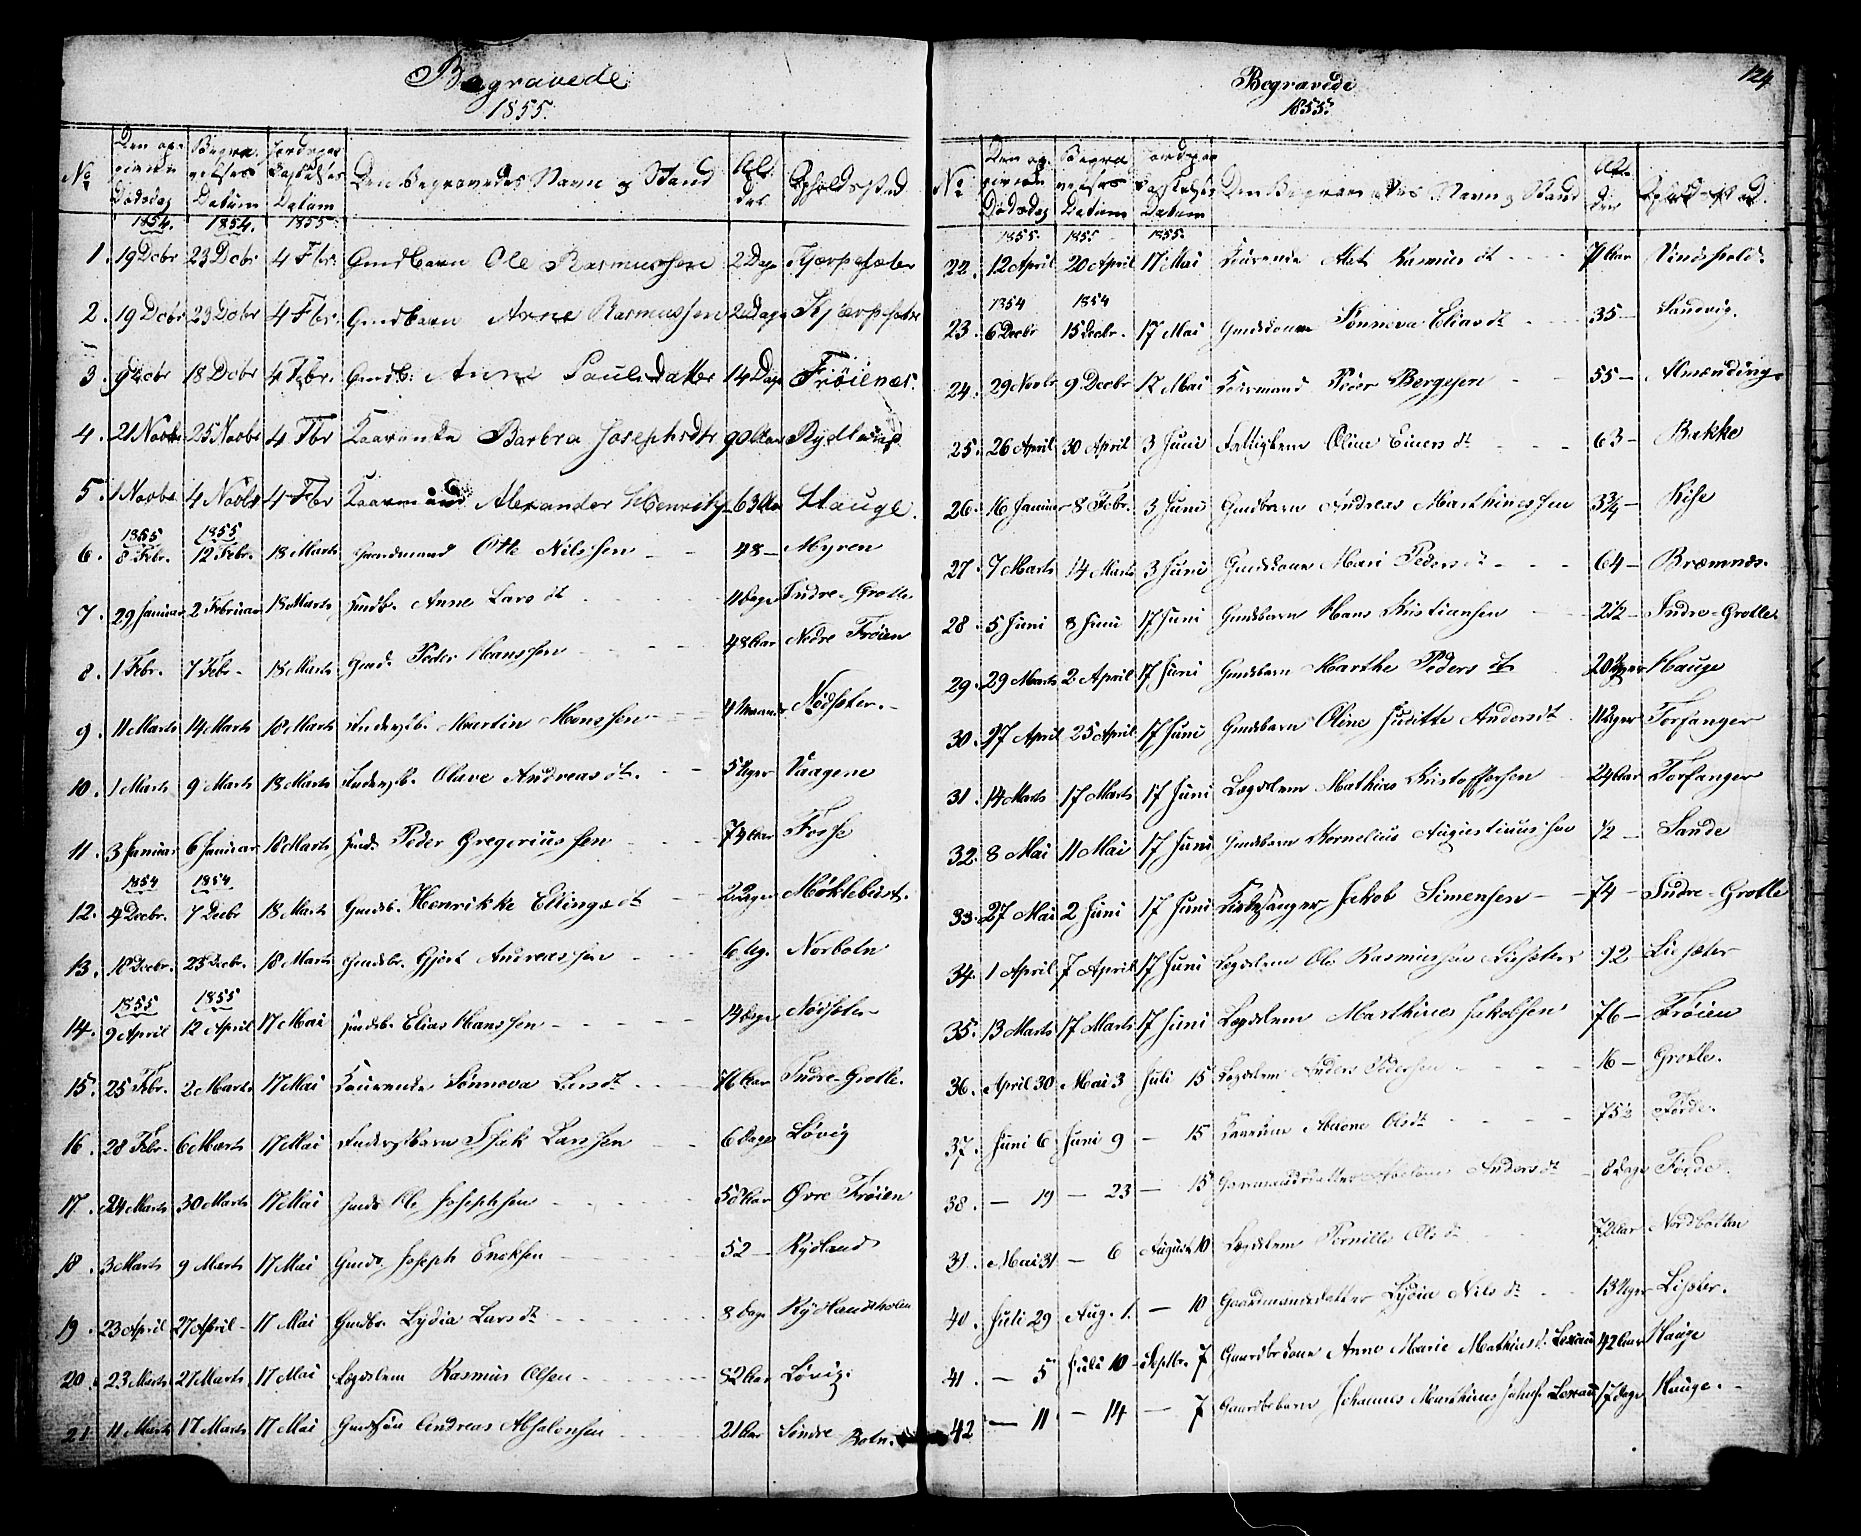 Begravede
1855.
No Den op- givne Dødsdag Begra- velses Datum Jordpaa- kastelses Datum Den Begravedes Navn og Stand Al- der Opholdssted
1854. 1854. 1855.
1. 19 Decbr 23 Decbr 4 Fbr. Gmdbarn Ole Rasmussen 2 Dage
2. 19 Dcbr 23 Dcbr 4 Fbr. Gmdbarn Anne Rasmussen 2 Dage
3. 9 Dcbr 18 Dcbr 4 Fbr. Gmdb. Anne Paulsdatter 14 Dage Frøienæs.
4. 21 Novbr 25 Novbr 4 Fbr Kaarenke Barbra Josephsdtr 90 Aar Rylland
5. 1 Novbr 4 Novbr 4 Fbr Kaarmand Alexander Henriks 63 Aar Hauge.
1855 1855
6. 8 Febr. 12 Febr. 18 Marts Gaardmand Otte Nilssen 48 — Myren
7. 29 Januar 2 Februar 18 Marts Gmdb. Anne Lars dt 4 Dage Indre-Grotle
8. 1 Febr. 7 Febr. 18 Marts Gmd. Peder Hanssen 48 Aar Nedre Frøien
9. 11 Marts 14 Marts 18 Marts Inderstb. Martin Monssen 4 Maaneder Nødseter.
10. 1 Marts 9 Marts 18 Marts Inderstb. Olave Andreas dt. 5 Uger Vaagene
11. 3 Januar 6 Januar 18 Marts Gmd. Peder Gregeriussen 74 Aar Fosse
1854 1854
12. 4 Decbr. 7 Decbr 18 Marts Gmdsb. Henrikke Ellings dt Møklebust.
13. 18 Decbr. 23 Decbr. 18 Marts Gmdsbr. Gjert Andreassen 6 Ug. Norbotn
1855 1855
14. 9 April 12 April 17 Mai Gmdsb. Elias Hanssen 14 Dage Nødseter
15. 25 Febr. 2 Marts 17 Mai Kaarenke Sønneva Lars dt. 76 Aar Indre-Grotle.
16. 28 Febr. 6 Marts 17 Mai Inderstbarn Isak Larssen 6 Dage Løvig
17. 24 Marts 30 Marts 17 Mai Gmd. Ole Josephsen 50 Aar Øvre Frøien
18. 3 Marts 9 Marts 17 Mai Gmd. Joseph Enoksen 52 — Rylland
19. 23 April 27 April 17 Mai Gmdbr. Lydia Lars dt 8 Dage Ryllandsholm
20. 23 Marts 27 Marts 17 Mai Lægdslem Rasmus Olsen 82 Aar Løvig.
21. 11 Marts 17 Marts 17 Mai Gmdsøn Andreas Absalonsen 21 Aar Søndre Botn.
124
Begravede
1855.
No Den op- givne Dødsdag Begra- velses Datum Jordpaa- kastelses Datum Den Begravedes Navn og Stand Al- der Opholdssted.
1855. 1855. 1855.
22. 12 April 20 April 17 Mai Kaarenke Rasmus dt 71 Aar Vindspold.
1854 1854
23. 6 Decbr 15 Decbr. 17 Mai Gmdskone Sønneva Elias dt 35 — Sandvig.
24. 29 Novbr 9 Decbr 17 Mai Kaarmand Peder Børgesen 55 —
25. 26 April 30 April 3 Juni Fattiglem Oline Einers dt 63 — Bakke
26. 16 Januar 8 Febr. 3 Juni Gmdbarn Andreas Marthinussen 3 3/4 — Rise
27. 7 Marts 14 Marts 3 Juni Gmdskone Mari Peders dt 64 — Bræmnes.
28. 5 Juni 8 Juni 17 Juni Gmdsbarn Hans Kristiansen 2 1/2 — Indre-Grotle.
29. 29 Marts 2 April 17 Juni Gmdsbarn Marthe Peders dt 20 Uger Hauge
30. 17 April 25 April 17 Juni Gmdsbarn Oline Juditte Anders dt 11 Uger Torfanger
31. 14 Marts 17 Marts 17 Juni Lægdslem Mathias Kristoffersen 24 Aar Torfanger
32. 8 Mai 11 Mai 17 Juni Gmdsbarn Kornelius Augustinussen 1/2 — Sande
33. 27 Mai 2 Juni 17 Juni Kirkesanger Jakob Simensen — 74 — Indre-Grotle
34. 1 April 7 April 17 Juni Lægdslem Ole Rasmussen Lisæter 92 — Lisæter
35. 13 Marts 17 Marts 17 Juni Lægdslem Marthines Jakobsen 76 — Frøien
36. April 30 Mai 3 Juli 15 Lægdslem Anders Pedersen 16 — Grotle.
37. Juni 6 Juni 9 — 15 Kaarkone Malone Olsdt 75 1/2 Førde.
38. — 19 — 23 — 15 Gaardmandsdatter Anders dt 8 Dage Førde.
39. Mai 31 — 6 August 10 Lægdslem Pernille Ols dt 72 Aar Nordbotten
40. Juli 29 Aug. 1. — 10 Gaardmandsdatter Lydia Nils dt 13 Uger Lisæter.
41. — 5 Juli 10 Septbr. 7 Gaardbr. Kone Anne Marie Mathias d. 42 Aar Hauge
42 — 11 — 14 — 7 Gaardbr. barn Johannes Marthinus 17 Dage Hauge.